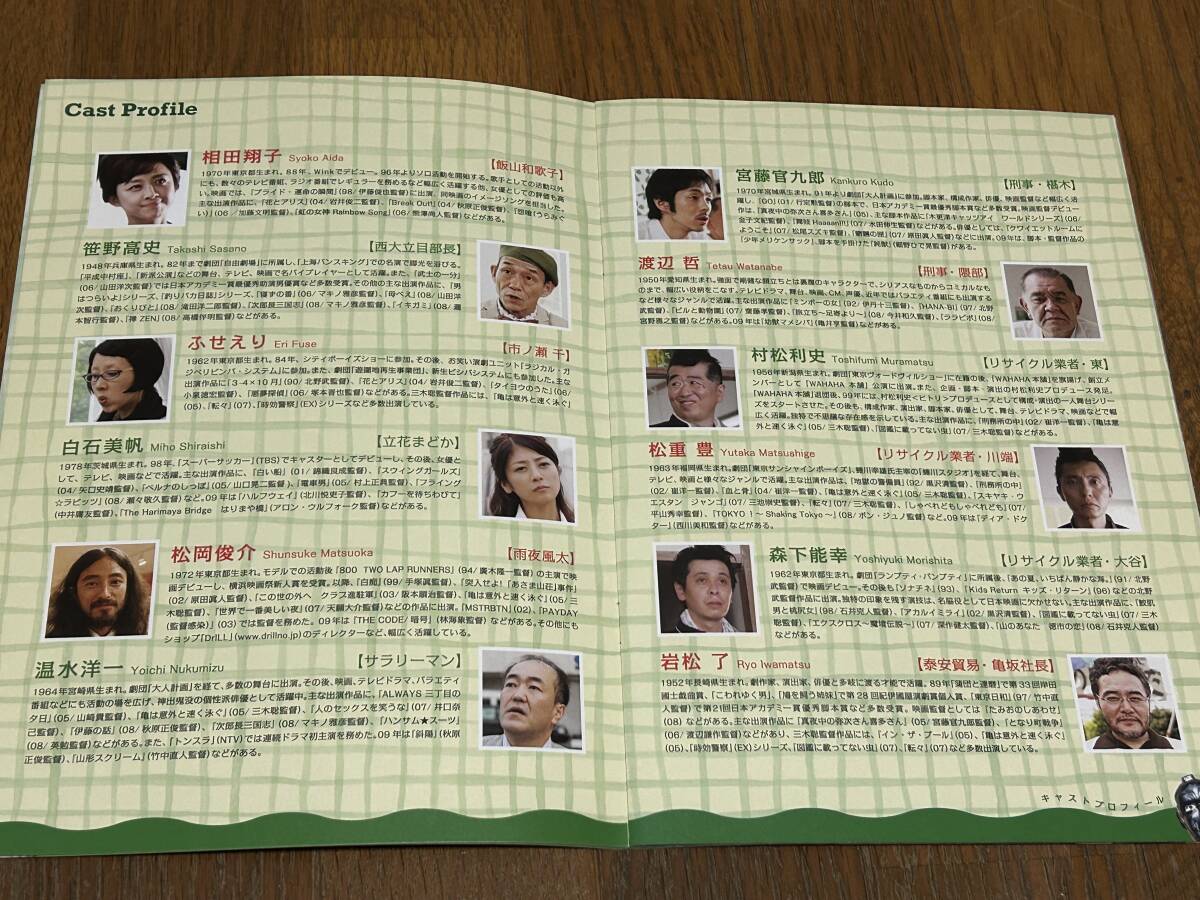 Cast Profile
相田翔子 Syoko Aida 【飯山和歌子】
1970年東京都生まれ。88年、Winkでデビュー。96年よりソロ活動を開始する。歌手としての活動以外
にも、数々のテレビ番組、ラジオ番組でレギュラーを務めるなど幅広く活躍する他、女優としての評価も高
い。映画では、「プライド・運命の瞬間」(98/伊藤俊也監督)に出演、同映画のイメージソングを担当した。
主な出演作に、「花とアリス」(04/岩井俊二監督)、「Break Out!」(04/秋原正俊監督)、「怨唫(うらみぐ
い)」(06/加藤文明監督)、「虹の女神 Rainbow Song」(06/熊澤尚人監督)などがある。
笹野高史 Takashi Sasano 【西大立目部長】
1948年兵庫県生まれ。82年まで劇団「自由劇場」に所属し、「上海バンスキング」での名演で脚光を浴びる。
「平成中村座」、「新派公演」などの舞台、テレビ、映画で名バイプレイヤーとして活躍。また、「武士の一分」
(06/山田洋次監督)では日本アカデミー賞最優秀助演男優賞など多数受賞。その他の主な出演作に、「男
はつらいよ」シリーズ、「釣りバカ日誌」シリーズ、「寝ずの番」(06/マキノ雅彦監督)、「母べえ」(08/山田洋
次監督)、「おくりびと」(08/滝田洋二郎監督)、「次郎長三国志」(08/マキノ雅彦監督)、「イキガミ」(08/瀧
本智行監督)、「禅 ZEN」(08/高橋伴明監督)などがある。
ふせえり Eri Fuse 【市ノ瀬 千】
1962年東京都生まれ。84年、シティボーイズショーに参加。その後、お笑い演劇ユニット「ラジカル・ガ
ジベリビンバ・システム」に参加。また、劇団「遊園地再生事業団」、新生ビシバシステムにも参加した。主な
出演作品に「3-4×10月」(90/北野武監督)、「花とアリス」(04/岩井俊二監督)、「タイヨウのうた」(06/
小泉徳宏監督)、「悪夢探偵」(06/塚本晋也監督)などがある。三木聡監督作品には、「亀は意外と速く泳ぐ」
(05)、「転々」(07)、「時効警察」(EX)シリーズなど多数出演している。
白石美帆 Miho Shiraishi 【立花まどか】
1978年茨城県生まれ。98年、「スーパーサッカー」(TBS)でキャスターとしてデビューし、その後、女優と
して、テレビ、映画などで活躍。主な出演作品に、「白い船」(01/錦織良成監督)、「スウィングガールズ」
(04/矢口史靖監督)、「ベルナのしっぽ」(05/山口晃二監督)、「電車男」(05/村上正典監督)、「フライング
☆ラビッツ」(08/瀬々敬久監督)など。09年は「ハルフウェイ」(北川悦吏子監督)、「カフーを待ちわびて」
(中井庸友監督)、「The Harimaya Bridge はりまや橋」(アロン・ウルフォーク監督)などがある。
松岡俊介 Shunsuke Matsuoka 【雨夜風太】
1972年東京都生まれ。モデルでの活動後「800 TWO LAP RUNNERS」(94/廣木隆一監督)の主演で映
画デビューし、横浜映画祭新人賞を受賞。以降、「白痴」(99/手塚眞監督)、「突入せよ!「あさま山荘」事件」
(02/原田眞人監督)、「この世の外へ クラブ進駐軍」(03/阪本順治監督)、「亀は意外と速く泳ぐ」(05/三
木聡監督)、「世界で一番美しい夜」(07/天願大介監督)などの作品に出演。「MSTRBTN」(02)、「PAYDAY
(監督感染)」(03)では監督を務めた。09年は「THE CODE/暗号」(林海象監督)などがある。その他にも
ショップ「DrILL」(www.drillno.jp)のディレクターなど、幅広く活躍している。
温水洋一 Yoichi Nukumizu 【サラリーマン】
1964年宮崎県生まれ。劇団「大人計画」を経て、多数の舞台に出演。その後、映画、テレビドラマ、バラエティ
番組などにも活動の場を広げ、神出鬼没の個性派俳優として活躍中。主な出演作品に、「ALWAYS 三丁目の
夕日」(05/山崎貴監督)、「亀は意外と速く泳ぐ」(05/三木聡監督)、「人のセックスを笑うな」(07/井口奈
己監督)、「伊藤の話」(08/秋原正俊監督)、「次郎長三国志」(08/マキノ雅彦監督)、「ハンサム★スーツ」
(08/英勉監督)などがある。また、「トンスラ」(NTV)では連続ドラマ初主演を務めた。09年は「斜陽」(秋原
正俊監督)、「山形スクリーム」(竹中直人監督)などがある。
宮藤官九郎 Kankuro Kudo 【刑事・椹木】
1970年宮城県生まれ。91年より劇団「大人計画」に参加。脚本家、構成作家、俳優、映画監督など幅広く活
躍し、「GO」(01/行定勲監督)の脚本で、日本アカデミー賞最優秀脚本賞など多数受賞。映画監督デビュー
作は、「真夜中の弥次さん喜多さん」(05)。主な脚本作品に「木更津キャッツアイ ワールドシリーズ」(06/
金子文紀監督)、「舞妓 Haaaan!!!」(07/水田伸生監督)などがある。俳優としては、「クワイエットルームに
ようこそ」(07/松尾スズキ監督)、「魍魎の匣」(07/原田眞人監督)などに出演。09年は、脚本・監督作品の
「少年メリケンサック」、脚本を手掛けた「鈍獣」(細野ひで晃監督)がある。
渡辺 哲 Tetsu Watanabe 【刑事・隈部】
1950年愛知県生まれ。強面で剛健な顔立ちとは裏腹のキャラクターで、シリアスなものからコミカルなも
のまで、幅広い役柄をこなす。テレビドラマ、舞台、映画、CM、声優、近年ではバラエティ番組にも出演する
など様々なジャンルで活躍。主な出演作品に「ミンボーの女」(92/伊丹十三監督)、「HANA-BI」(97/北野
武監督)、「ビルと動物園」(07/齋藤孝監督)、「旅立ち〜足寄より〜」(08/今井和久監督)、「ララピポ」(08/
宮野雅之監督)などがある。09年は「幼獣マメシバ」(亀井亨監督)などがある。
村松利史 Toshifumi Muramatsu 【リサイクル業者・東】
1956年新潟県生まれ。劇団「東京ヴォードヴィルショー」に在籍の後、「WAHAHA 本舗」を旗揚げ、創立メ
ンバーとして「WAHAHA 本舗」公演に出演。また、企画・脚本・演出の村松利史プロデュース発足。
「WAHAHA 本舗」退団後、99年には、村松利史<ヒトリ>プロデュースとして構成・演出の一人舞台シリー
ズをスタートさせた。その後も、構成作家、演出家、脚本家、俳優として、舞台、テレビドラマ、映画などで幅
広く活躍。独特で不思議な存在感を示している。主な出演作品に、「刑務所の中」(02/崔洋一監督)、「亀は意
外と速く泳ぐ」(05/三木聡監督)、「図鑑に載ってない虫」(07/三木聡監督)などがある。
松重 豊 Yutaka Matsushige 【リサイクル業者・川端】
1963年福岡県生まれ。劇団「東京サンシャインボーイズ」、蜷川幸雄氏主宰の「蜷川スタジオ」を経て、舞台、
テレビ、映画と様々なジャンルで活躍。主な出演作品は、「地獄の警備員」(92/黒沢清監督)、「刑務所の中」
(02/崔洋一監督)、「血と骨」(04/崔洋一監督)、「亀は意外と速く泳ぐ」(05/三木聡監督)、「スキヤキ・ウ
エスタン ジャンゴ」(07/三池崇史監督)、「転々」(07/三木聡監督)、「しゃべれどもしゃべれども」(07/
平山秀幸監督)、「TOKYO!〜Shaking Tokyo〜」(08/ポン・ジュノ監督)など。09年は「ディア・ドク
ター」(西川美和監督)などがある。
森下能幸 Yoshiyuki Morishita 【リサイクル業者・大谷】
1962年東京都生まれ。劇団「ランプティ・パンプティ」に所属後、「あの夏、いちばん静かな海。」(91/北野
武監督)で映画デビュー。その後も「ソナチネ」(93)、「Kids Return キッズ・リターン」(96)などの北野
武監督作品に出演。独特の印象を残す演技は、名脇役として日本映画に欠かせない。主な出演作に、「鮫肌
男と桃尻女」(98/石井克人監督)、「アカルイミライ」(02/黒沢清監督)、「図鑑に載ってない虫」(07/三木
聡監督)、「エクスクロス〜魔境伝説〜」(07/深作健太監督)、「山のあなた 徳市の恋」(08/石井克人監督)
などがある。
岩松 了 Ryo Iwamatsu 【泰安貿易・亀坂社長】
1952年長崎県生まれ。劇作家、演出家、俳優と多岐に渡る才能で活躍。89年「蒲団と達磨」で第33回岸田
國士戯曲賞、「こわれゆく男」、「鳩を飼う姉妹」で第28回紀伊國屋演劇賞個人賞、「東京日和」(97/竹中直
人監督)で第21回日本アカデミー賞優秀脚本賞など多数受賞。映画監督としては「たみおのしあわせ」
(08)などがある。主な出演作品に「真夜中の弥次さん喜多さん」(05/宮藤官九郎監督)、「となり町戦争」
(06/渡辺謙作監督)などがあり、三木聡監督作品には、「イン・ザ・プール」(05)、「亀は意外と速く泳ぐ」
(05)、「時効警察」(EX)シリーズ、「図鑑に載ってない虫」(07)、「転々」(07)など多数出演している。
キャストプロフィール